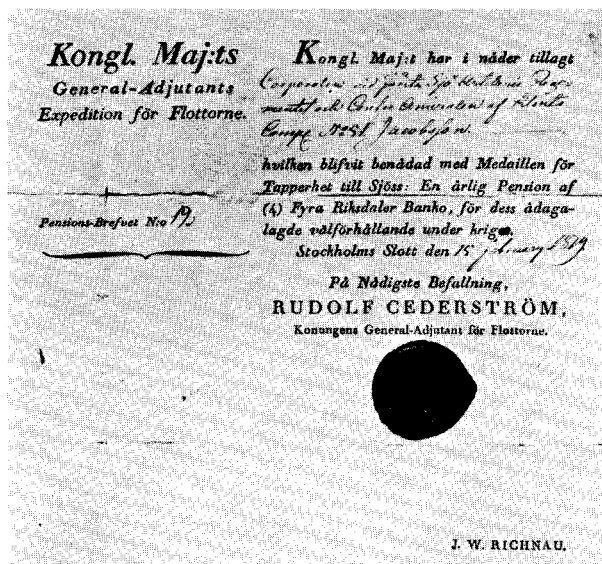 Kongl. Maj:ts
General-Adjutants
Expedition för Flottorne.
Pensions-Brefvet N:o 19
Kongl. Maj:t har i nåder tillagt
Corporalen vid första Sjö
af
Comp. No 51 Jacobsson
hvilken blifvit benådad med Medaillen för
Tapperhet till Sjöss: En årlig Pension af
(4) Fyra Riksdaler Banko, för dess ådaga-
lagde välförhållande under kriget.
Stockholms Slott den 15 1819
På Nådigste Befallning,
RUDOLF CEDERSTRÖM,
Konungens General-Adjutant för Flottorne.
J. W. RICHNAU.